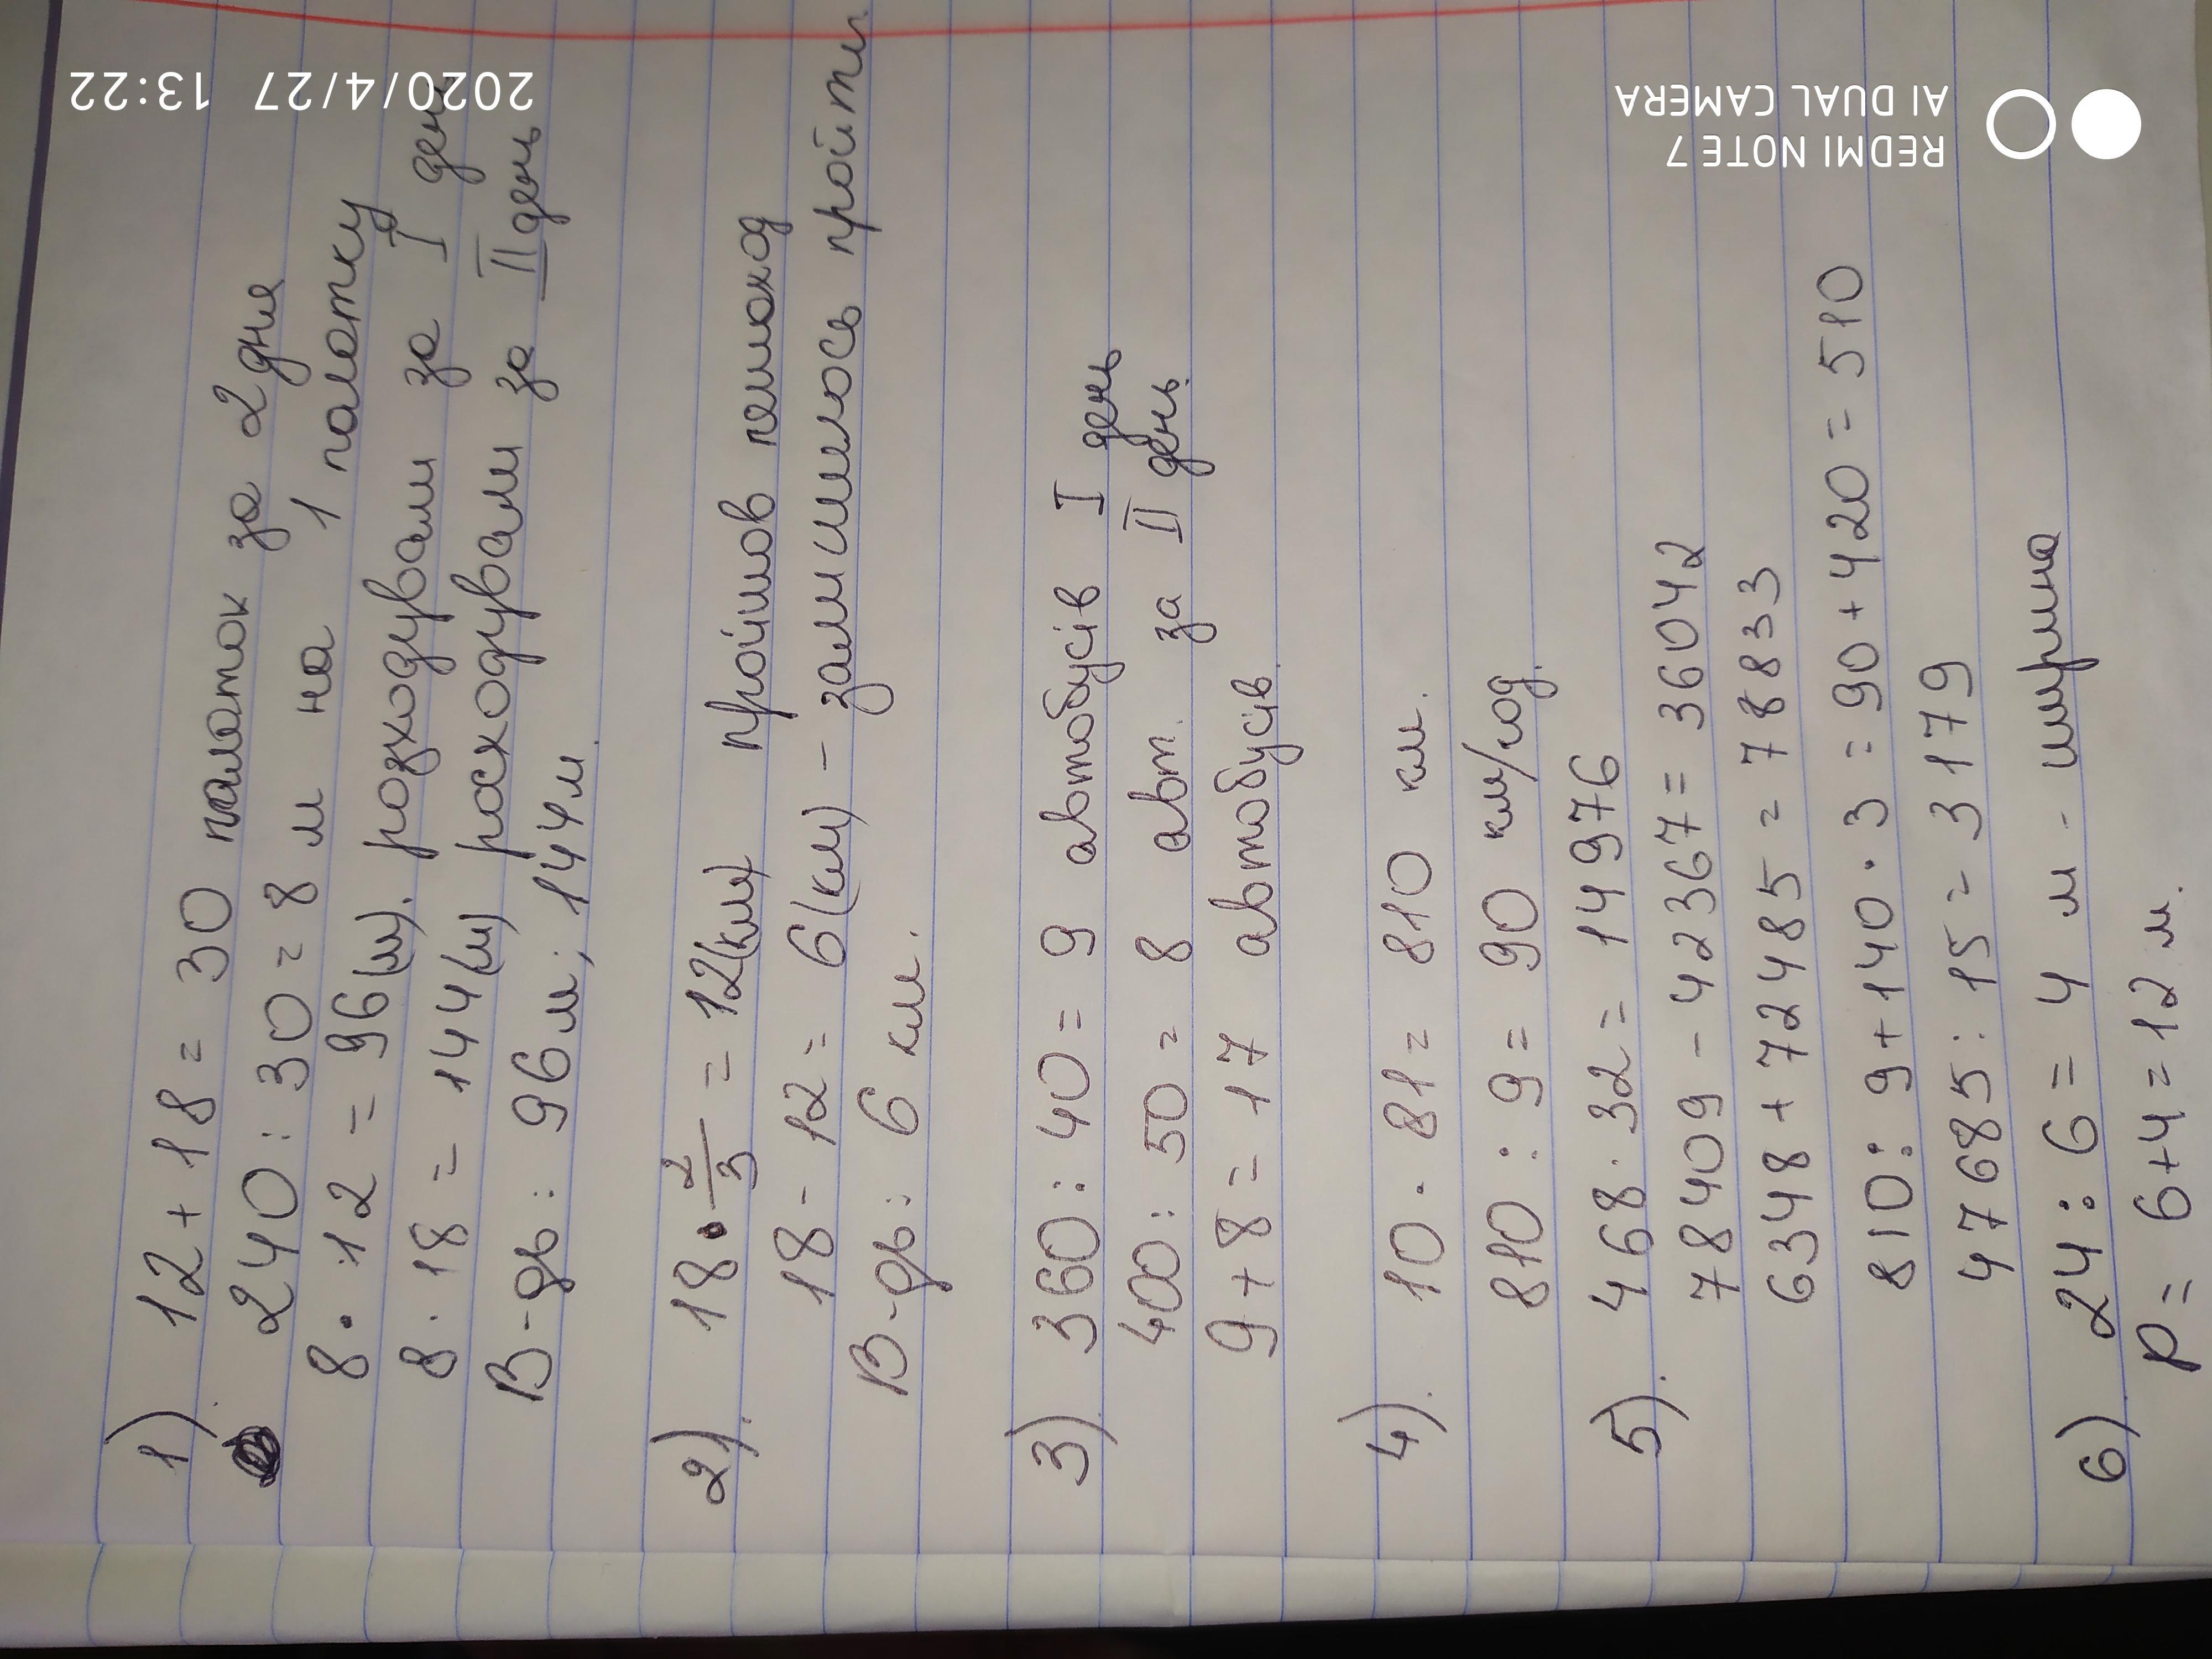 1). 12 + 18 = 30 палаток за 2 дня
240 : 30 = 8 м на 1 палатку
8 · 12 = 96 (м). розходували за I день
8 · 18 = 144 (м) расходували за II день
В-дь: 96 м; 144 м.
2). 18 · 2/3 = 12 (км) пройшов пешоход
18 - 12 = 6 (км) - залишилось пройти
В-дь: 6 км.
3) 360 : 40 = 9 автобусів I день
400 : 50 = 8 авт. за II день.
9 + 8 = 17 автобусів.
4). 10 · 81 = 810 км.
810 : 9 = 90 км/год.
5). 468 · 32 = 14976
78409 - 42367 = 36042
6348 + 72485 = 78833
810 : 9 + 140 · 3 = 90 + 420 = 510
47685 : 15 = 3179
6) 24 : 6 = 4 м - ширина
P = 6+4 = 12 м.
2020/4/27 13:22
REDMI NOTE 7
AI DUAL CAMERA